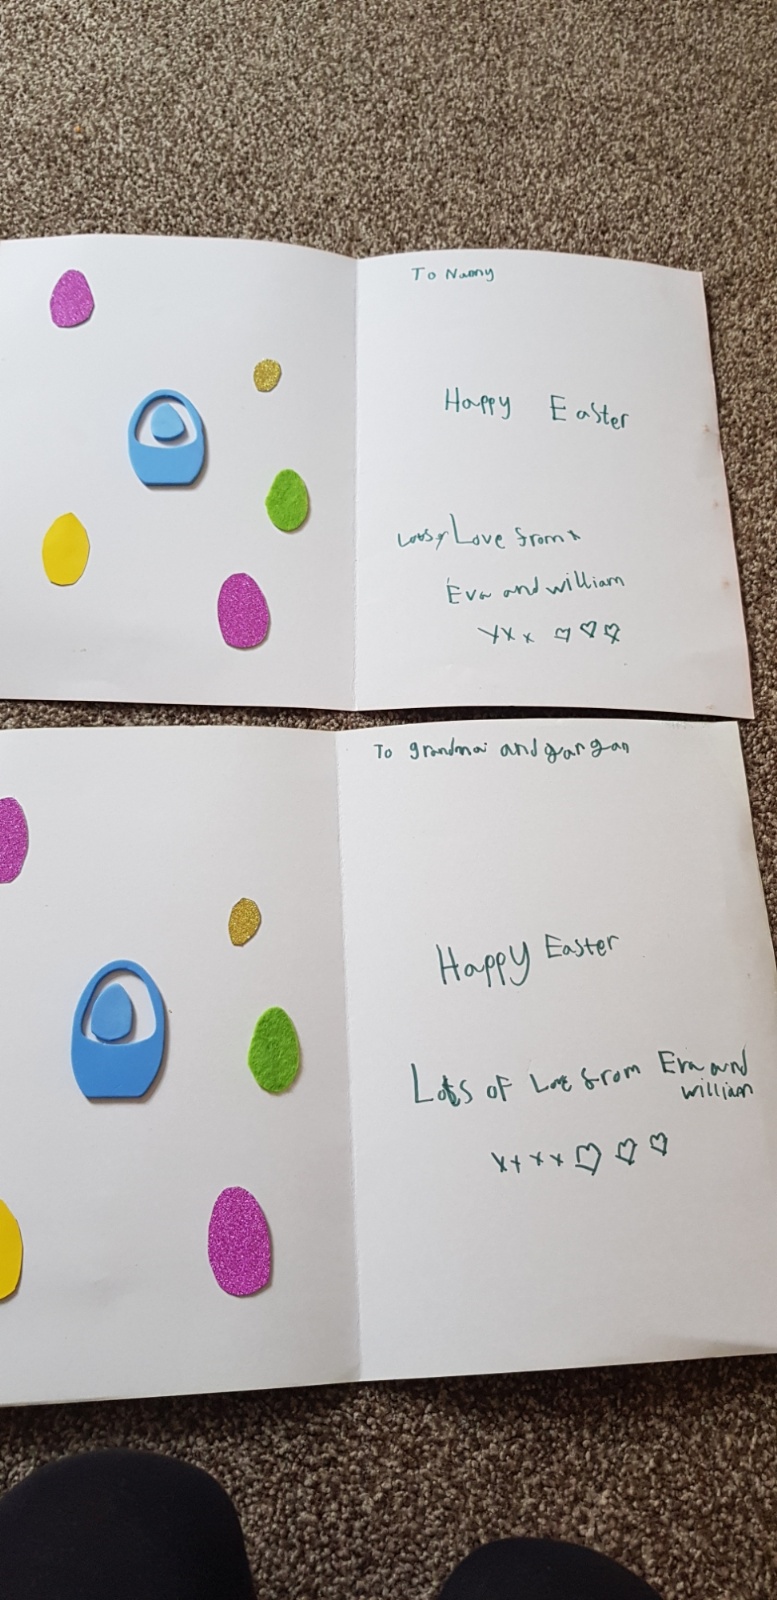 To Nanny
Happy Easter
Lots of Love from
Eva and william
xxx ♡♡♡
To grandma and gargan
Happy Easter
Lots of Love from Eva and
william
xxxx ♡♡♡